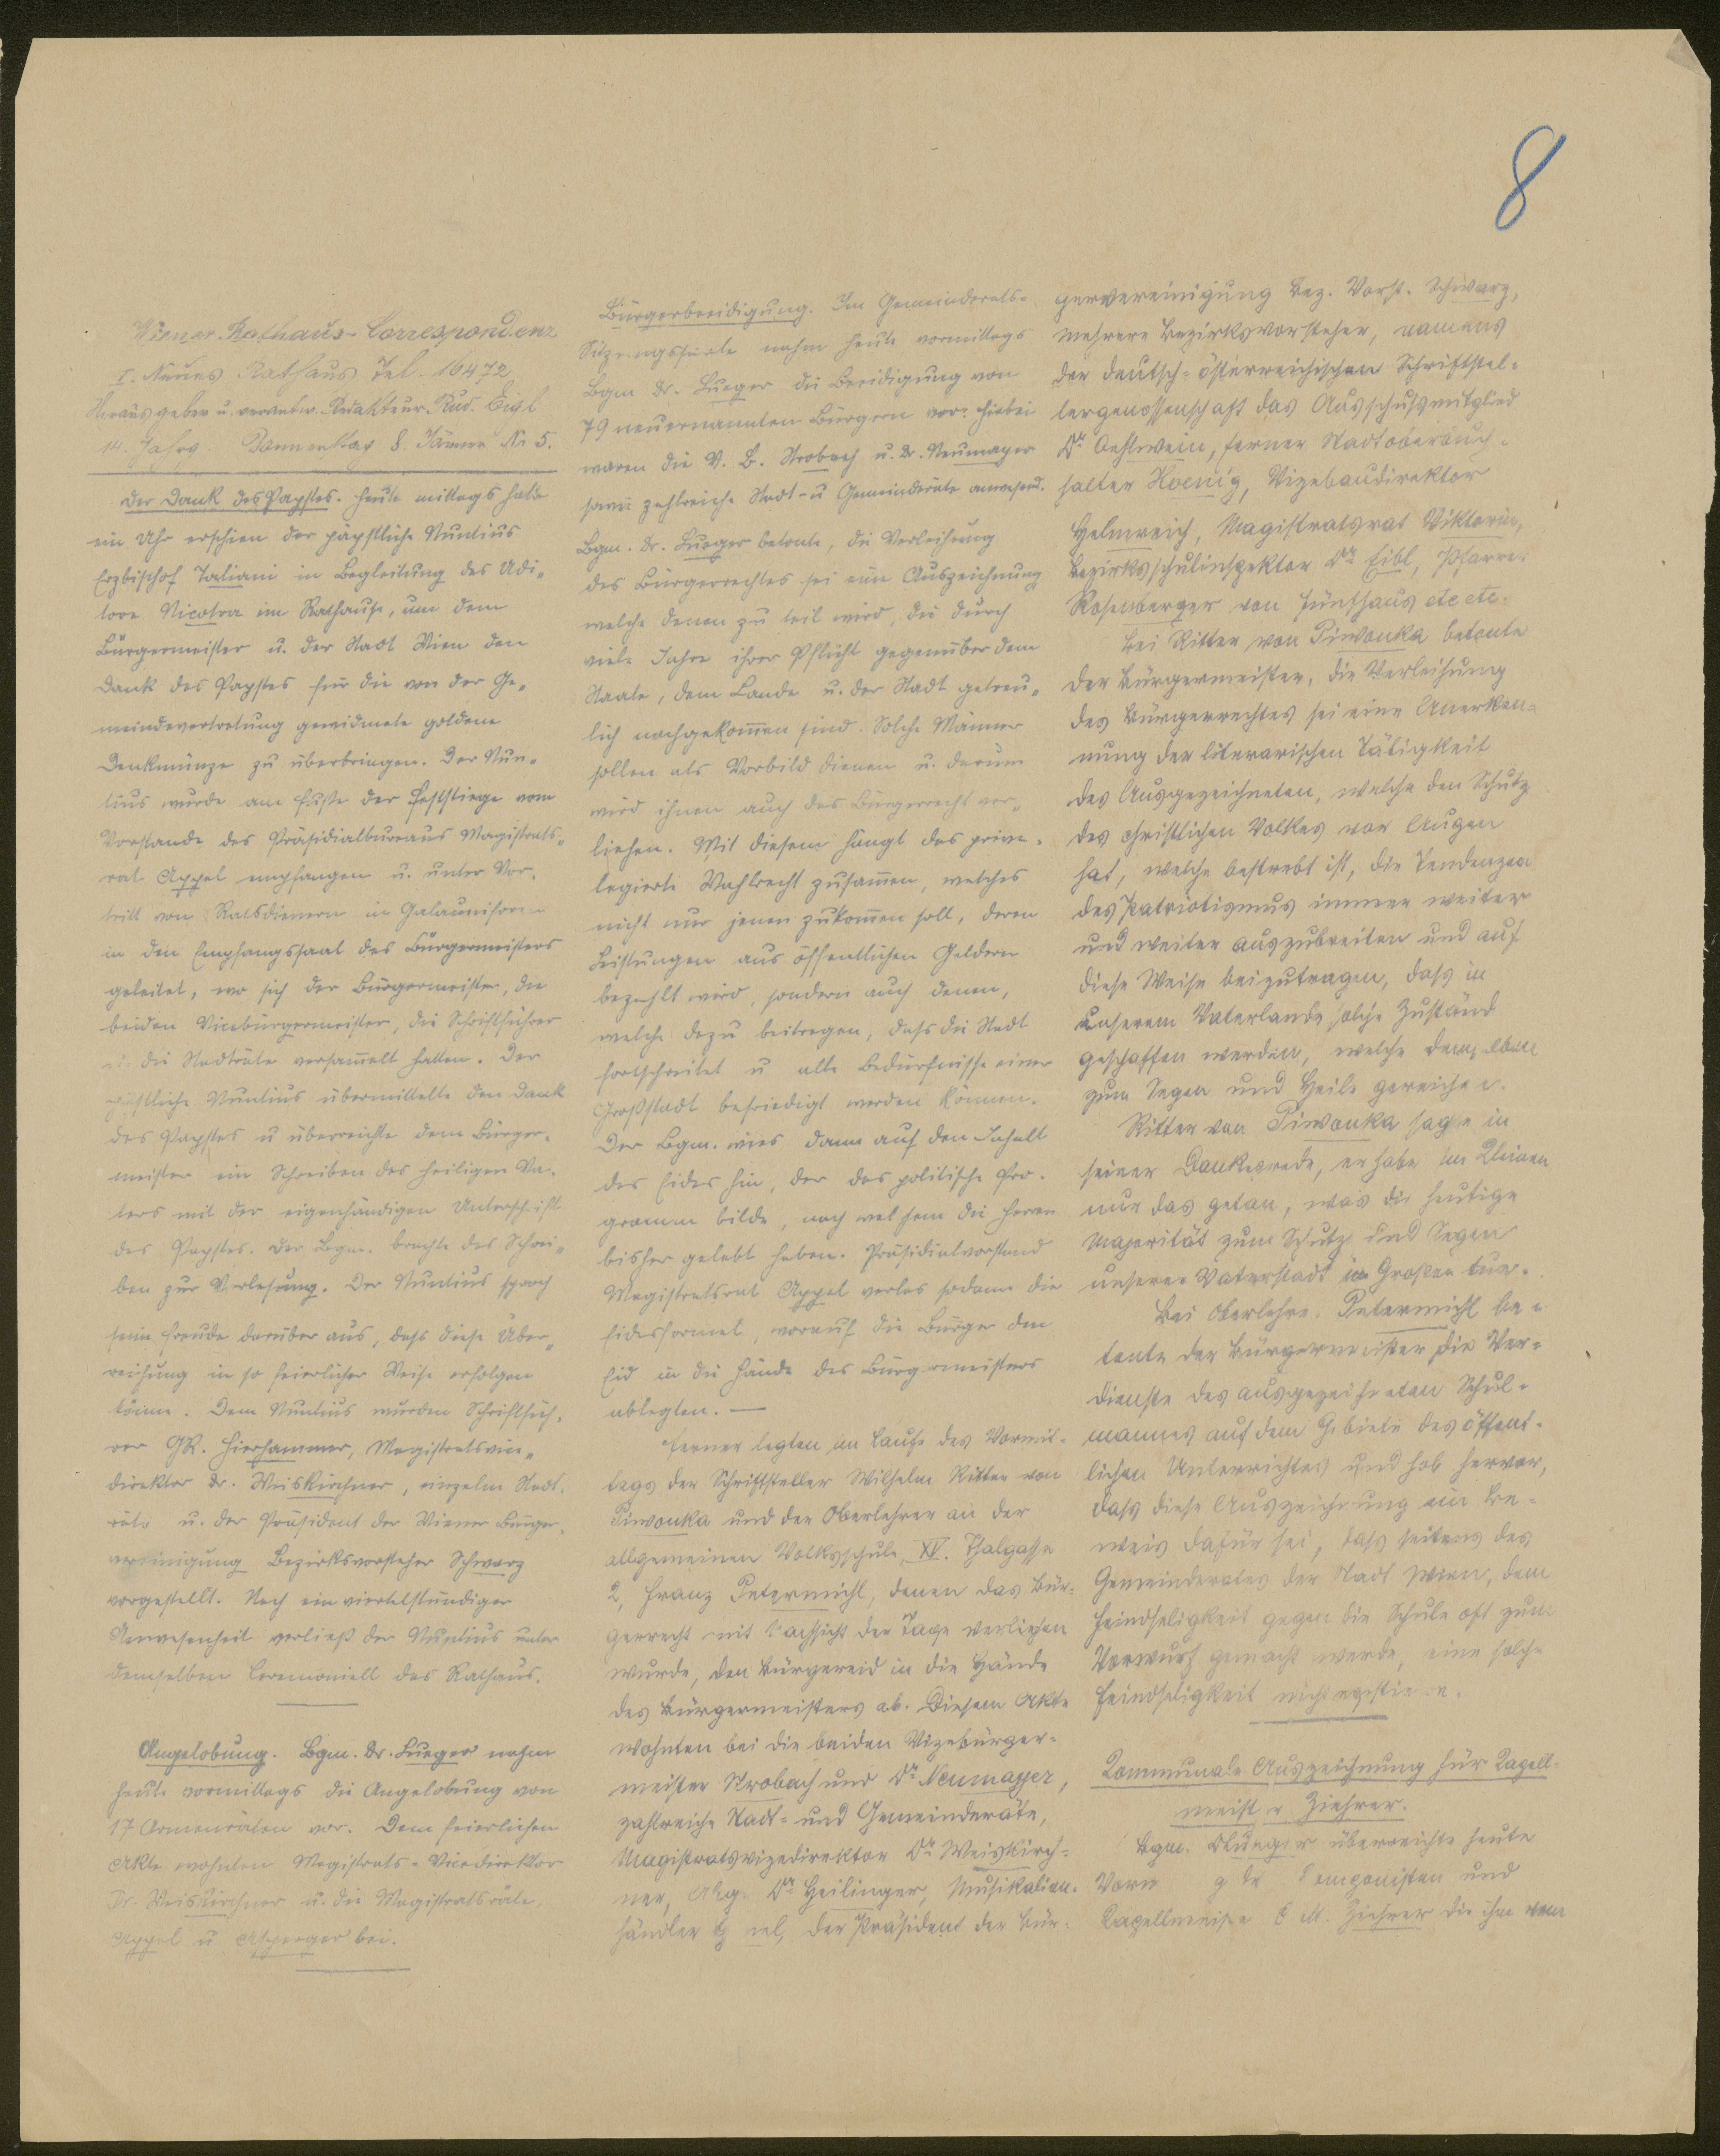 8
Wiener Rathaus-Correspondenz
I. Neues Rathaus Tel. 16472
Herausgeber u. verantw. Redakteur Rud. Eigl
14. Jahrg. Donnerstag 8. Jänner Nr 5.
Der Dank des Papstes. Heute mittags halb
ein Uhr erschien der päpstliche Nuntius
Erzbischof Taliani in Begleitung des Udi„
tore Nicotra im Rathause, um dem
Bürgermeister u. der Stadt Wien den
Dank des Papstes für die von der Ge„
meindevertretung gewidmete goldene
Denkmünze zu überbringen. Der Nun„
tius wurde am Fuße der Feststiege vom
Vorstande des Präsidialbureaus Magistrats„
rat Appel empfangen u. unter Vor„
tritt von Ratsdienern in Galauniform
in den Empfangssaal des Bürgermeisters
geleitet, wo sich der Bürgermeister, die
beiden Vicebürgermeister, die Schriftführer
die Stadträte versam̅elt hatten. Der
päpstliche Nuntius übermittelte den Dank
des Papstes u überreichte dem Bürger„
meister ein Schreiben des heiligen Va„
ters mit der eigenhändigen Unterschrift
des Papstes. Der Bgm. brachte das Schrei„
ben zur Verlesung. Der Nuntius sprach
seine Freude darüber aus, daß diese Über„
reichung in so feierlicher Weise erfolgen
könne. Dem Nuntius wurden Schriftfüh„
rer GR. Hierhammer, Magistratsvice„
direktor Dr. Weiskirchner, einzelne Stadt„
räte u. der Präsident der Wiener Bürger„
vereinigung Bezirksvorsteher Schwarz
vorgestellt. Nach einviertelstündiger
Anwesenheit verließ der Nuntius unter
demselben Ceremoniell das Rathaus.
Angelobung. Bgm. Dr. Lueger nahm
heute vormittags die Angelobung von
17 Armenräten vor. Dem feierlichen
Akte wohnten Magistrats-Vicedirektor
Dr. Weiskirchner u. die Magistratsräte
Appel u Asperger bei.
Bürgerbeeidigung. Im Gemeinderats-
Sitzungssaale nahm heute vormittags
Bgm Dr. Lueger die Beeidigung von
79 neuernannten Bürgern vor. Hiebei
waren die V. B. Strobach u. Dr. Neumayer
sowie zahlreiche Stadt- u Gemeinderäte anwesend.
Bgm. Dr. Lueger betonte, die Verleihung
des Bürgerrechtes sei eine Auszeichnung
welche denen zu teil wird, die durch
viele Jahre ihrer Pflicht gegenüber dem
Staate, dem Lande u. der Stadt getreu„
lich nachgekom̅en sind. Solche Männer
sollen als Vorbild dienen u. darum
wird ihnen auch das Bürgerrecht ver„
liehen. Mit diesem hängt das privi„
legierte Wahlrecht zusam̅en, welches
nicht nur jenen zukom̅en soll, deren
Leistungen aus öffentlichen Geldern
bezahlt wird, sondern auch denen,
welche dazu beitragen, daß die Stadt
fortschreitet u alle Bedürfnisse einer
Großstadt befriedigt werden können.
Der Bgm. wies dann auf den Inhalt
des Eides hin, der das politische Pro„
gramm bilde, nach welchem die Herren
bisher gelebt haben. Präsidialvorstand
Magistratsrat Appel verlas sodann die
Eidesformel, worauf die Bürger den
Eid in die Hände des Bürgermeisters
ablegten. —
Ferner legten im Laufe des Vormit-
tags der Schriftsteller Wilhelm Ritter von
Piwonka und der Oberlehrer an der
allgemeinen Volksschule, XV. Thalgasse
2, Franz Petermichl, denen das Bür-
gerrecht mit Nachsicht der Taxe verliehen
wurde, den Bürgereid in die Hände
des Bürgermeisters ab. Diesem Akte
wohnten bei die beiden Vizebürger-
meister Strobach und Dr. Neumayer,
zahlreiche Stadt- und Gemeinderäte,
Magistratsvizedirektor Dr. Weiskirch-
ner, Abg. Dr. Heilinger, Musikalien-
händler der Präsident der Bür-
gervereinigung Bez. Vorst. Schwarz,
mehrere Bezirksvorsteher, namens
der deutsch-österreichischen Schriftstel-
lergenossenschaft das Ausschußmitglied
Dr. Oehlwein, ferner Stadtoberbuch-
halter Koenig, Vizebaudirektor
Helmreich, Magistratsrat Viktorin,
Bezirksschulinspektor Dr. Eibl, Pfarrer
Rosenberger von Fünfhaus etc etc.
Bei Ritter von Piwonka betonte
der Bürgermeister, die Verleihung
des Bürgerrechtes sei eine Anerken-
nung der literarischen Tätigkeit
des Ausgezeichneten, welche den Schutz
des christlichen Volkes vor Augen
hat, welche bestrebt ist, die Tendenzen
des Patriotismus immer weiter
und weiter auszubreiten und auf
diese Weise beizutragen, daß in
unserem Vaterlande solche Zustände
geschaffen werden, welche demselben
zum Segen und Heile gereichen.
Ritter von Piwonka sagte in
seiner Dankesrede, er habe im Kleinen
nur das getan, was die heutige
Majorität zum Schutz und Segen
unserer Vaterstadt im Großen tue.
Bei Oberlehrer Petermichl be-
tonte der Bürgermeister die Ver-
dienste des ausgezeichneten Schul-
mannes auf dem Gebiete des öffent-
lichen Unterrichtes und hob hervor,
daß diese Auszeichnung ein Be-
weis dafür sei, daß seitens des
Gemeinderates der Stadt Wien, dem
Feindseligkeit gegen die Schule oft zum
Vorwurf gemacht werde, eine solche
Feindseligkeit nicht existiere.
Kommunale Auszeichnung für Kapell-
meister Ziehrer.
Bgm. Dr Lueger überreichte heute
Componisten und
Kapellmeister C. M. Ziehrer die ihm vom